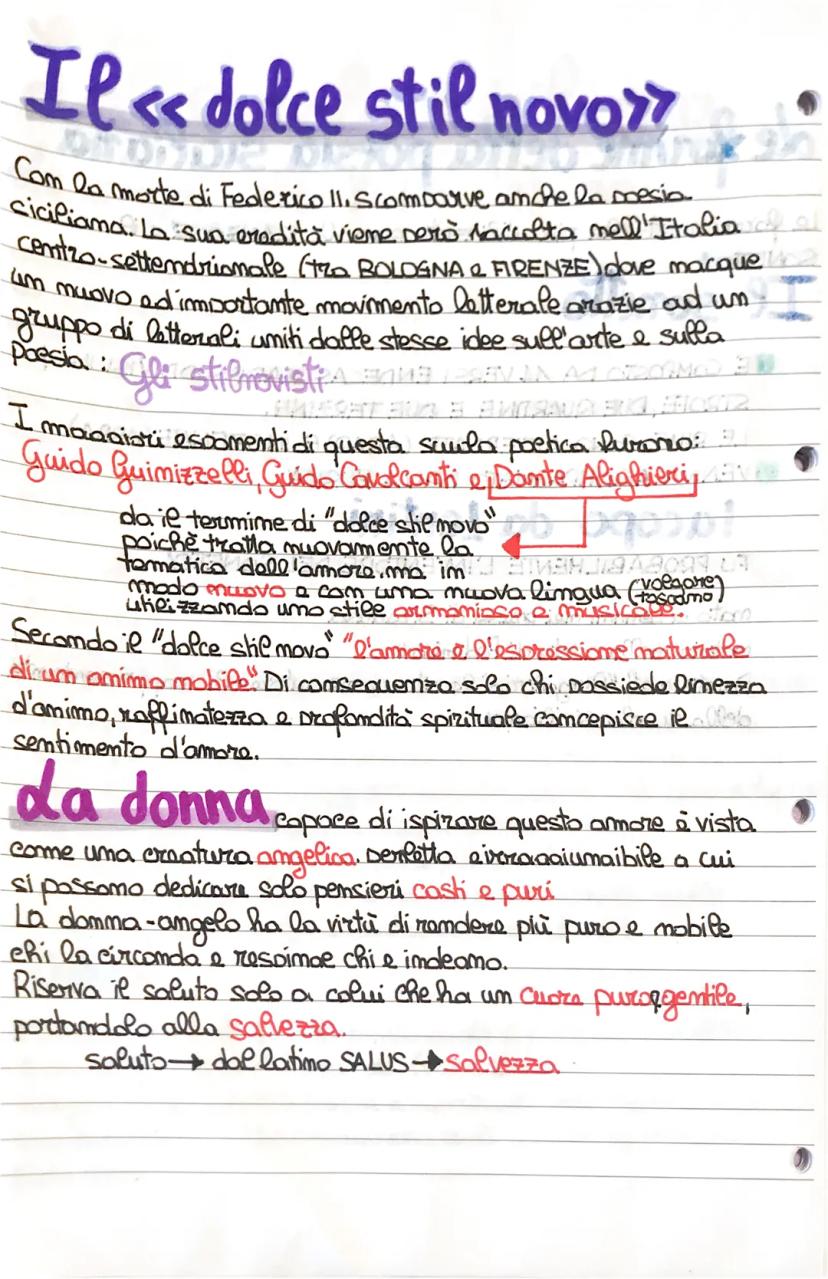 Il «dolce stil novo»
Con la morte di Federico II, scomparve anche la poesia
siciliana. La sua eredità viene però raccolta nell'Italia
centro-settendrionale (tra BOLOGNA e FIRENZE) dove nacque
un nuovo ed importante movimento letterale grazie ad un
gruppo di letterali uniti dalle stesse idee sull'arte e sulla
poesia: Gli stilnovisti
I maggiori esponenti di questa scuola poetica furono:
Guido Guinizzelli, Guido Cavalcanti e Dante Alighieri
da il termine di "dolce stil novo"
poichè tratta nuovamente la
tematica dell'amore, ma in
modo nuovo e con una nuova lingua (volgare toscano)
utilizzando uno stile armonioso e musicale.
Secondo il "dolce stil novo" "l'amore e l'espressione naturale
di un animo nobile" Di conseguenza solo chi possiede finezza
d'animo, raffinatezza e profondità spirituale concepisce il
sentimento d'amore.
La donna capace di ispirare questo amore è vista
come una creatura angelica, perfetta e a cui
si possono dedicare solo pensieri casti e puri
La donna-angelo ha la virtù di rendere più puro e nobile
chi la circonda e chi e indegno.
Riserva il saluto solo a colui che ha un cuore puro e gentile,
portandolo alla salvezza.
saluto → dal latino SALUS → salvezza